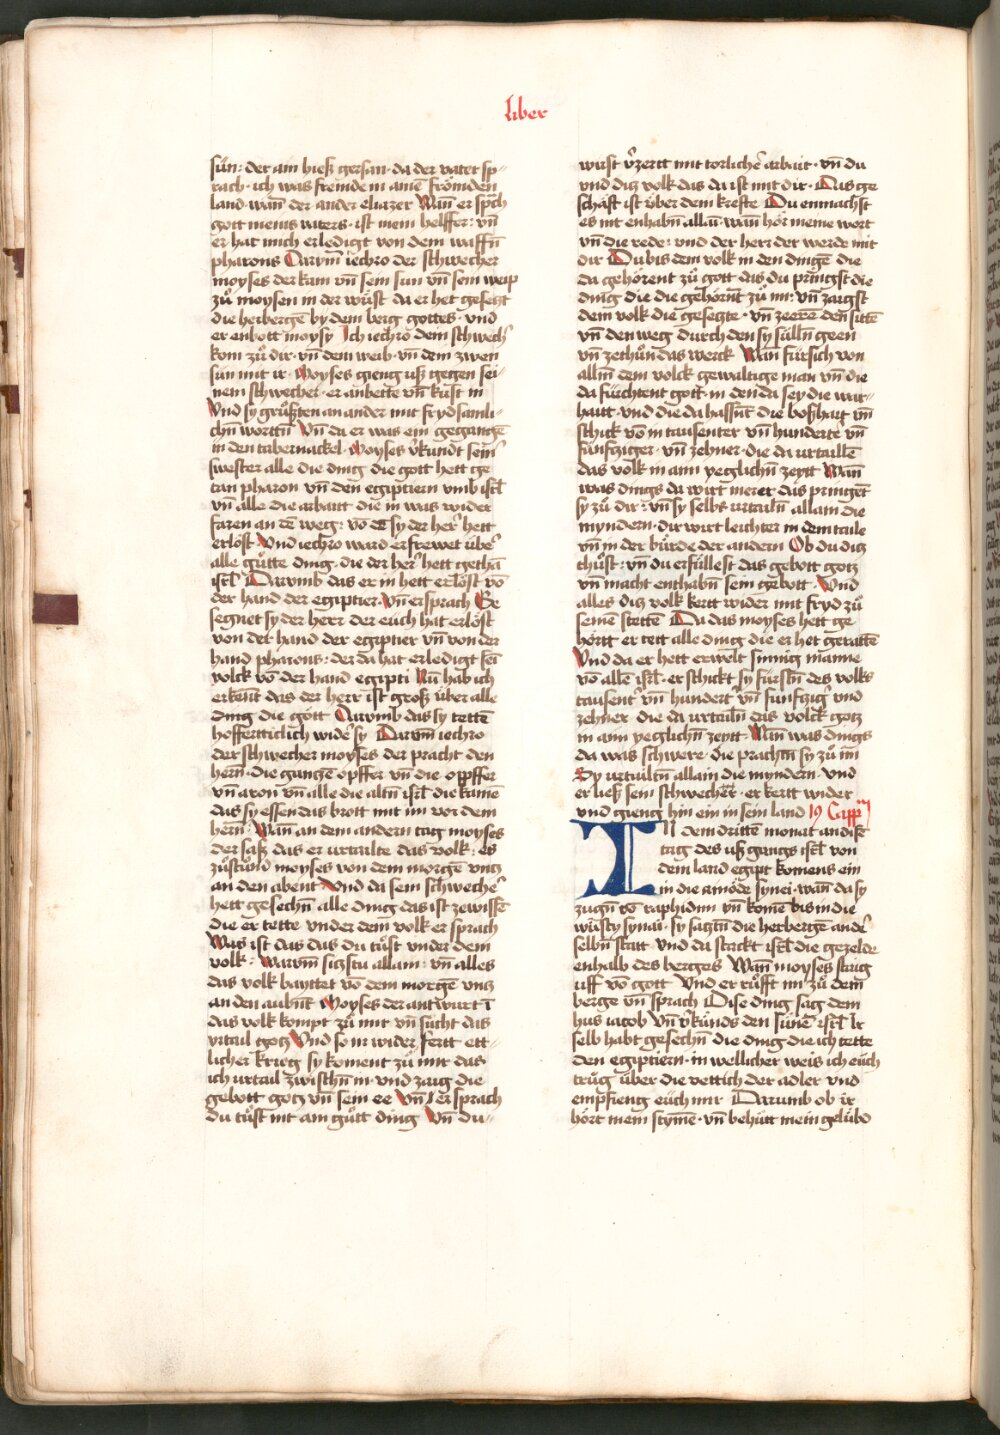 liber
sún: der ain hieß gersan · da der vater sp-
rach · ich was fremde in aine᷑ frömden
land · wan̄ der ander eliazer Wan̄ er sp̄ch
gott meins vaters · ist mein helffer: vn̄
er hat mich erledigt von dem waffn̄
pharons Darvm̄ iechro der schwecher
moyses der kam vn̄ sein sun vn̄ sein weip
zů moysen in der wůst da er het gesetzt
die herberge᷑ by dem berg gottes · vnd
er enbott moysy Ich iechro dein schwech᷑
kom zů dir · vn̄ dein weib · vn̄ dein zwen
sun mit ir · Moyses gieng uß gegen sei-
nem schwecher · er anbette vn̄ kust in
Vnd sy grůßten an ander mit frydsamli-
chn̄ worttn̄ Vn̄ da er was ein gegange᷑
in den tabernackel · Moyses v᷑kundt sein᷑
swester alle die ding die gott hett ge
tan pharon vn̄ den egiptiern vmb isr̄l
vn̄ alle die arbaitt die in was wider
faren an de᷑ weg: vō de sy der her᷑ hett
erlöst Vnd iechro ward erfrewet über᷑
alle gůtte ding · die der her᷑ hett gethā
isr̄l Darvmb das er in hett erlöst vō
der hand der egiptier · Vn̄ er sprach Ge
segnet sy der herr der eüch hat erlöst
von der hand der egiptier vn̄ von der
hand pharons: der da hat erledigt sei᷑
volck vō der hand egipti Nu᷑ hab ich
erkent das der herr ist groß über alle
ding die gött Darvmb das sy tette᷑
hofferticlich wider᷑ sy Darvm̄ iechro
der schwecher moyses der pracht den
hern̄ · die gancze᷑ opffer vn̄ die opffer
vn̄ aron vn̄ alle die altn̄ isr̄l die kame᷑
das sy essen das brott mit im vor dem
hern̄ · Wan̄ an dem andern tag moyses
der saß das er vrtailte das volk: es
zůstůnd moyses von dem morge᷑ vncz
an den abent Vnd da sein schweche᷑
hett gesechn̄ alle ding das ist zewisse᷑
die er tette vnder dem volk er sprach
Was ist das das du tůst vnder dem
volk: Warvm̄ siczstu allain: vn̄ alles
das volk bayttet vō dem morge᷑ vncz
an den aubn̄t Moyses der antwurt ī
das volk kompt zů mir vn̄ sucht das
vrtail gotz Vnd so in widerfertt ett-
licher krieg sy koment zů mir das
ich vrtail zwischn̄ in · vnd zaig die
gebott gotz vn̄ sein ee Vn̄ er sprach
du tůst nit ain gůtt ding Vn̄ du-
wirst v᷑zertt mit torliche᷑ arbait · vn̄ du
vnd diz volk das da ist mit dir · Das ge
schäft ist über dein krefte Du enmachst
es nit enhabn̄ allai᷑ · wan̄ hör meine wort
vn̄ die rede: vnd der herr der werde mit
dir Du bis dem volk in den dinge᷑ die
da gehörent zů gott das du pringst die
ding die die gehörn̄t zů im: vn̄ zaigst
dem volk die gesetzte · vn̄ zeere᷑ den sitte᷑
vn̄ den weg durch den sy sülln̄ geen
vn̄ zethůn das werck Wan̄ fürsich von
alln̄ dem volck gewaltige man vn̄ die
da fürchtent gott · in den da sey die war-
haitt · vnd die da hassn̄t die boßhait vn̄
schick vō in tausenter vn̄ hunderte᷑ vn̄
fünfcziger · vn̄ zehner · die da vrtaile᷑
das volk in ainn yeglichn̄ zeytt Wan̄
was dings da wirt merer das pringe᷑t
sy zů dir: vn̄ sy selbs vrtailn̄ allain die
myndern · dir wirt leichter in dem taile
vn̄ in der bürde der andern Ob du diz
thůst: vn̄ du erfüllest das gebott gotz
vn̄ macht enthabn̄ sein gebott · Vnd
alles diz volk kertt wider mit fryd zů
seine᷑ stette᷑ Da das moyses hett ge
hörtt er tett alle ding die er het geratte᷑
Vnd da er hett erwelt sinnig manne
vō alle᷑ isr̄l · er schickt sy fürstn̄ des volks
tausent᷑ vn̄ hundert᷑ vn̄ funfczig᷑ vnd
zehner die da vrtailn̄ das volck gotz
in ainn yeglichn̄ zeytt · Wan̄ was dings
da was schwere · die prachtn̄ sy zů im
Sy vrtailtn̄ allain die myndern · vnd
er ließ sein schwecher · er kertt wider
vnd gieng hin ein in sein land 19 Capp̄m
In dem dritten monat an disē
tag des uß gangs isr̄l von
dem land egipt komens ein
in die ainöde synei · wan̄ da sy
zugn̄ vō raphidim vn̄ kome᷑ bis in die
wüsty synai · sy satztn̄ die herberge᷑ ande᷑
selbn̄ statt Vnd da starkt isr̄l die gezelde
enhalb des berges Wan̄ moyses staig
uff vō gott Vnd er růfft im zů dem
berge vn̄ sprach Dise ding sag dem
hus iacob Vn̄ v᷑künds den süne᷑ isr̄l Ir
selb habt gesechn̄ die ding die ich tette
den egiptiern · in wellicher weis ich eüch
trůg über die vettich der adler vnd
empfieng eüch mir Darumb ob ir
hört mein stym̄e · vn̄ behütt mein gelübd